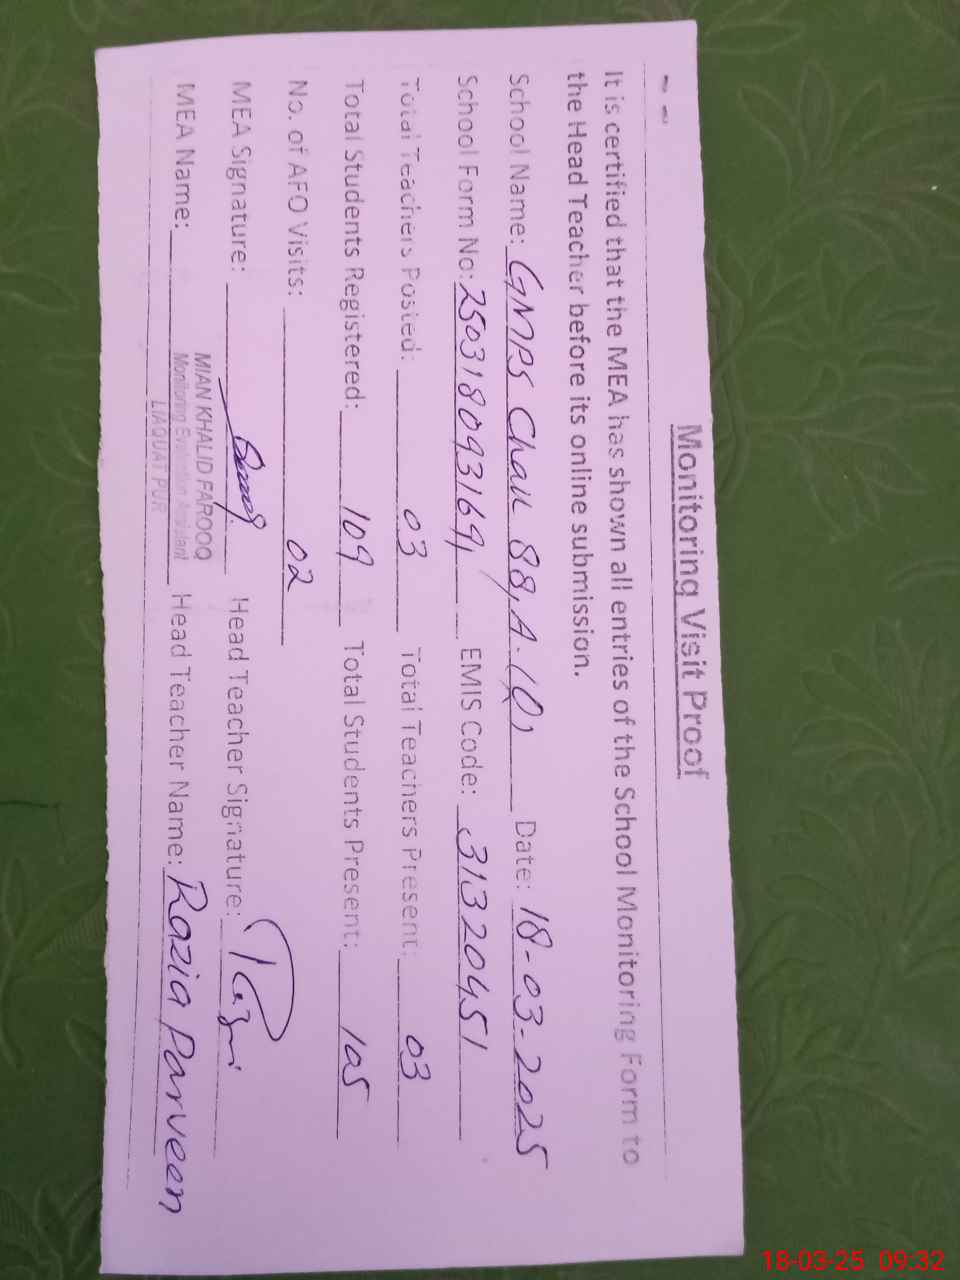 Monitoring Visit Proof
It is certified that the MEA has shown all entries of the School Monitoring Form to
the Head Teacher before its online submission.
School Name: GMPS Chak 88,A.(Q) Date: 18-03-2025
School Form No: 2503180931691 EMIS Code: 31320451
Total Teachers Posted: 03 Total Teachers Present: 03
Total Students Registered: 109 Total Students Present: 105
No. of AFO Visits: 02
MEA Signature: Head Teacher Signature:
MIAN KHALID FAROOQ
MEA Name: Monitoring Evaluation Assistant Head Teacher Name: Razia Parveen
LIAQUAT PUR
18-03-25 09:32